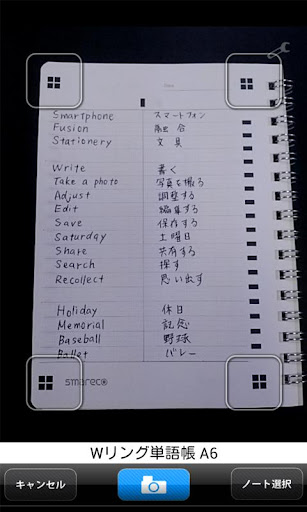 Smartphone スマートフォン
Fusion 融合
Stationery 文具
Write 書く
Take a photo 写真を撮る
Adjust 調整する
Edit 編集する
Save 保存する
Saturday 土曜日
Share 共有する
Search 探す
Recollect 思い出す
Holiday 休日
Memorial 記念
Baseball 野球
Ballet バレー
smareco
Wリング単語帳 A6
キャンセル
ノート選択